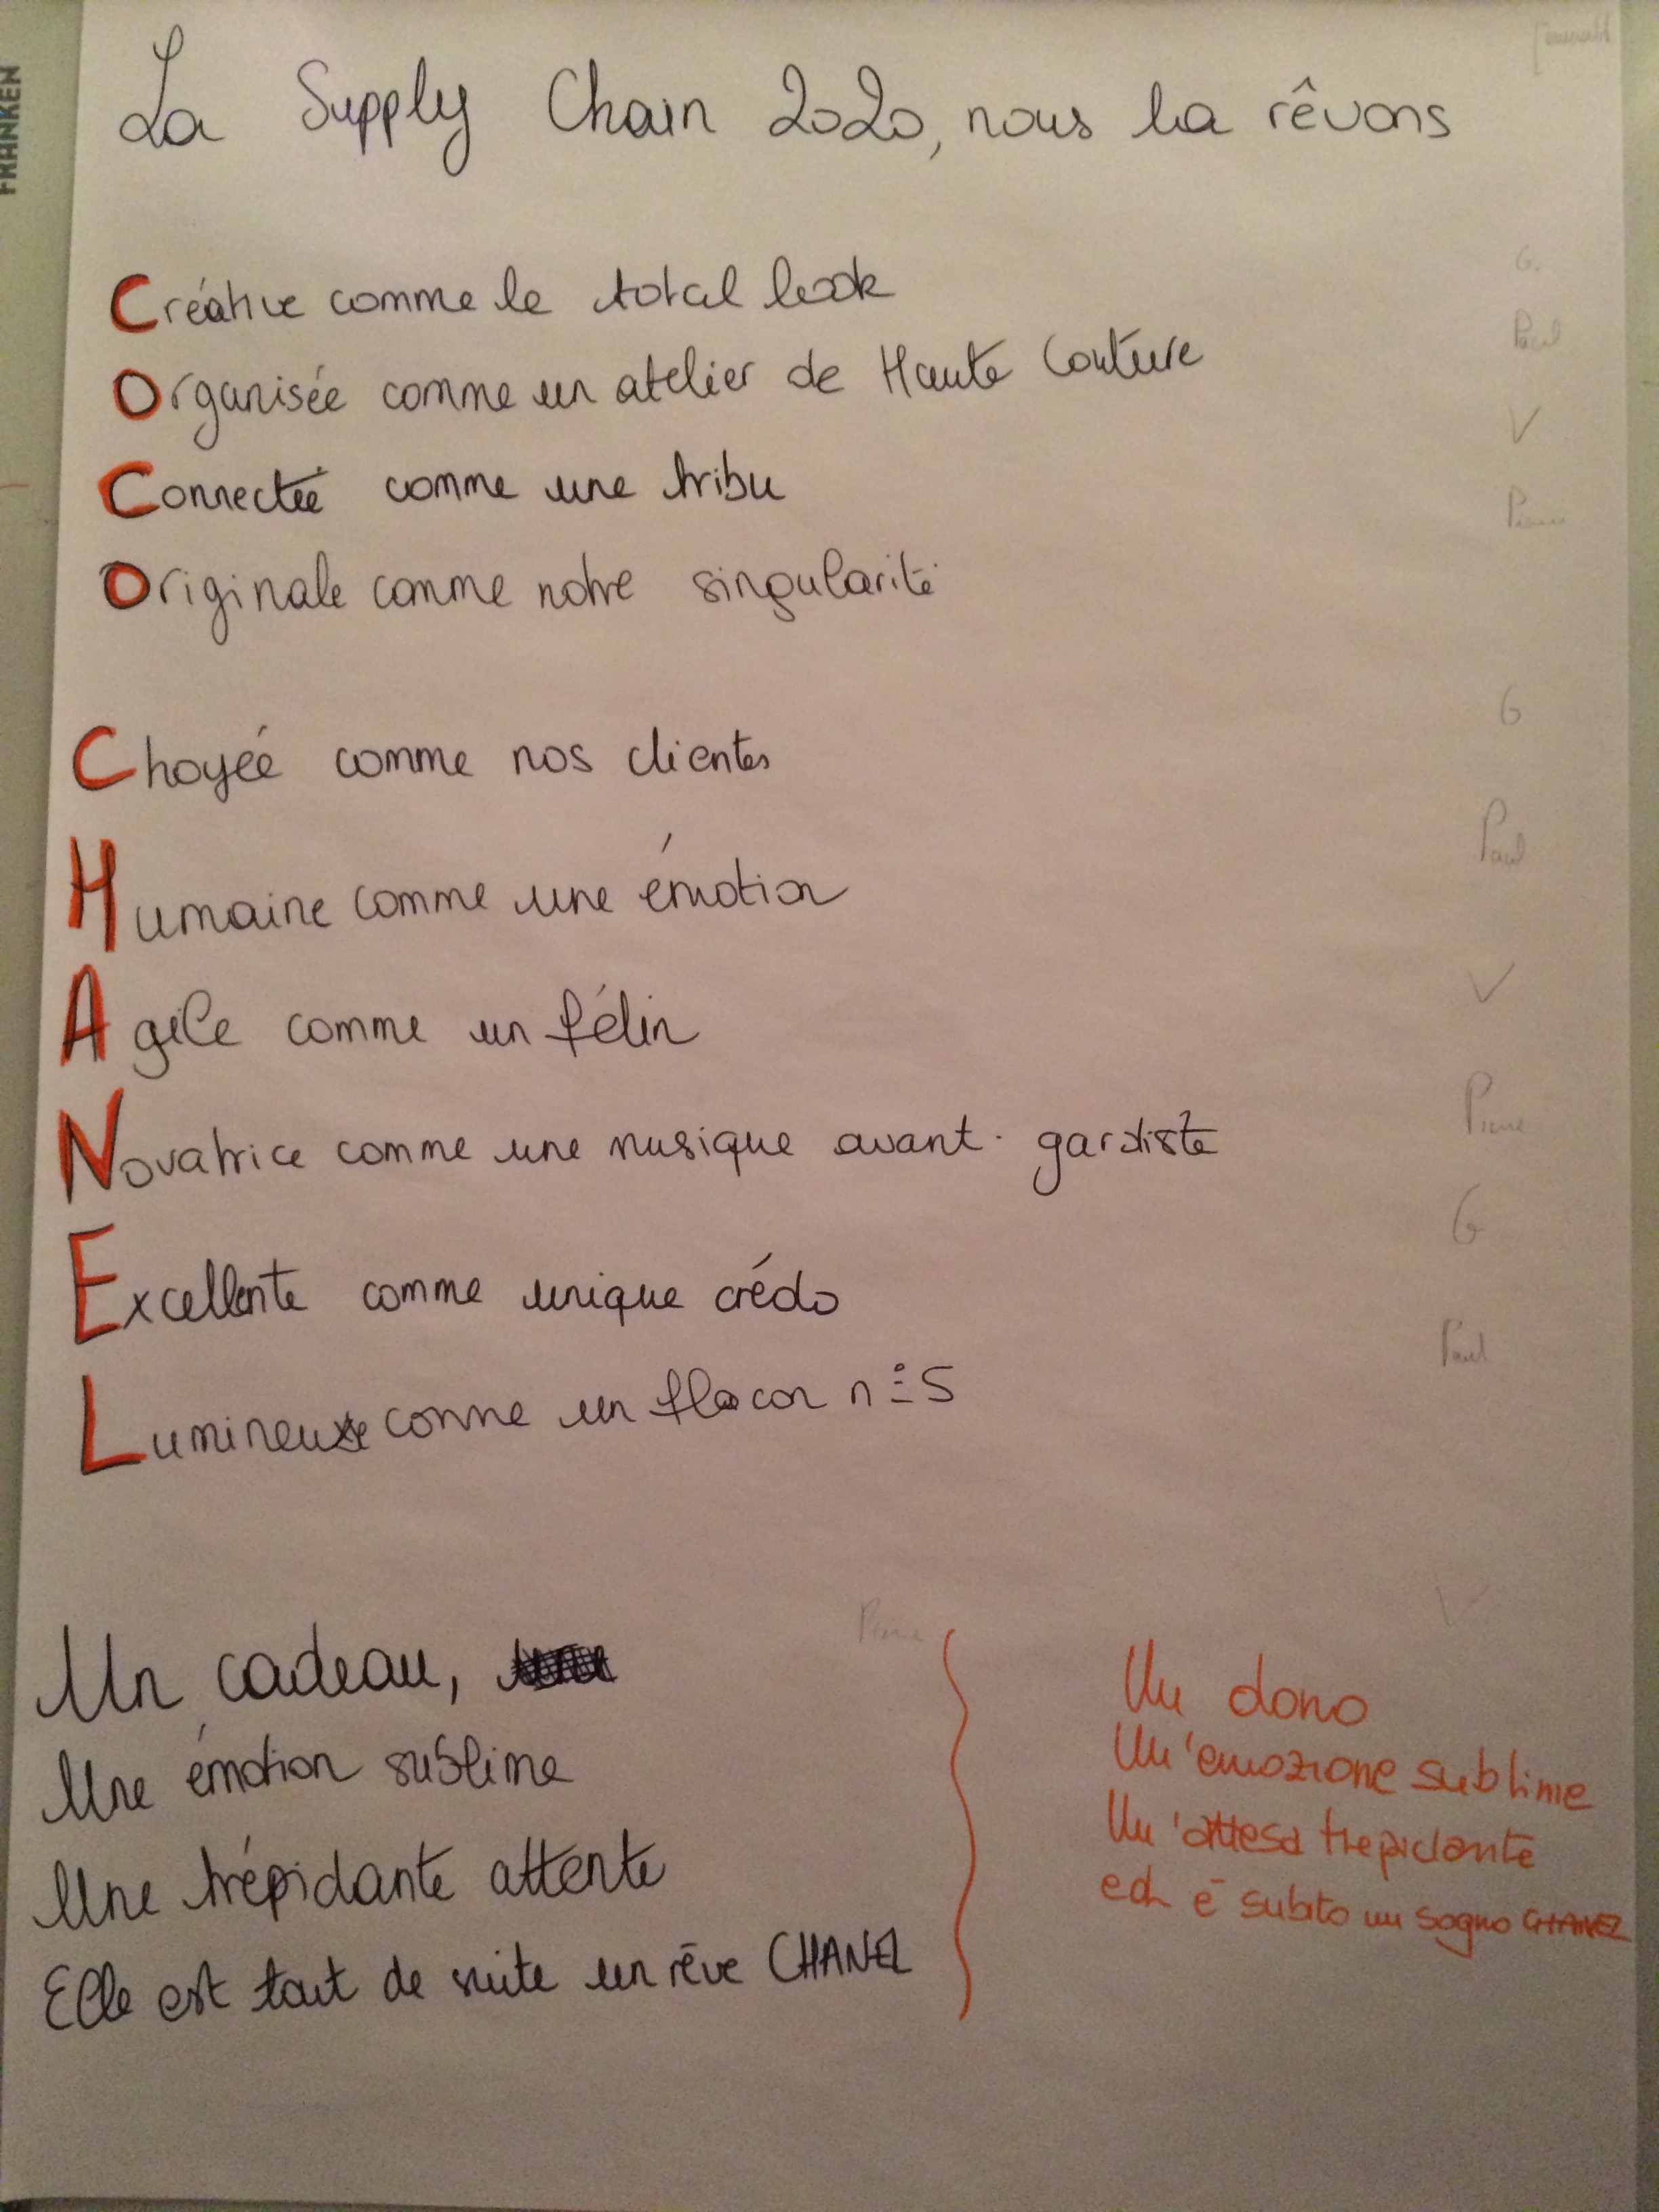 FRANKEN
La Supply Chain 2020, nous la rêvons
G.
Créative comme le total look
Paul
Organisée comme un atelier de Haute Couture
V
Connectée comme une tribu
Pierre
Originale comme notre singularité
G
Choyée comme nos clientes
Paul
Humaine comme une émotion
V
Agile comme un félin
Pierre
Novatrice comme une musique avant-gardiste
G
Excellente comme unique crédo
Paul
Lumineuse comme un flacon n°5
V
Pierre
Un cadeau,
Une émotion sublime
Une trépidante attente
Elle est tout de suite un rêve CHANEL
Un dono
Un'emozione sublime
Un'attesa trepidante
ed è subito un sogno CHANEL